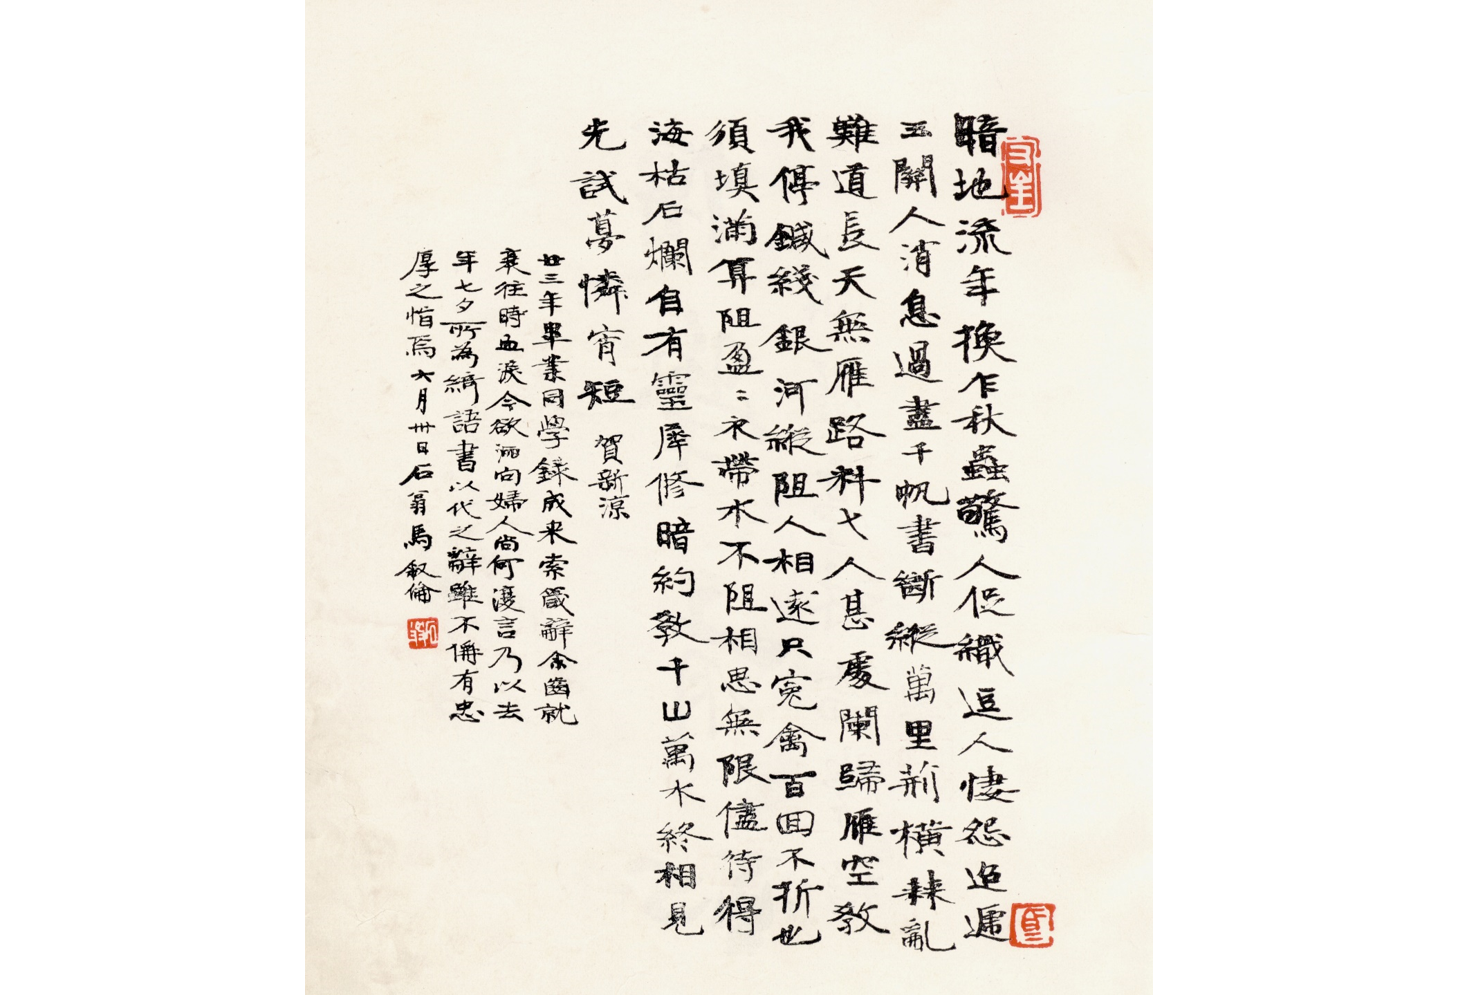 暗地流年換乍秋蟲驚人促織逗人悽怨迢遞
玉關人消息過盡千帆書斷縱萬里荊橫棘亂
難道長天無雁路料七人甚處闌歸雁空教
我停鍼綫銀河縱阻人相遠只冤禽百回不折也
須填滿算阻盈〻衣帶水不阻相思無限儘待得
海枯石爛自有靈犀修暗約教千山萬水終相見
先試夢憐宵短
賀新涼
廿三年畢業同學錄成来索箴辭余齒就
衰往時血淚今欲洒向婦人尚何復言乃以去
年七夕所為綺語書以代之辭雖不倩有忠
厚之恉焉六月卅日石翁馬叙倫